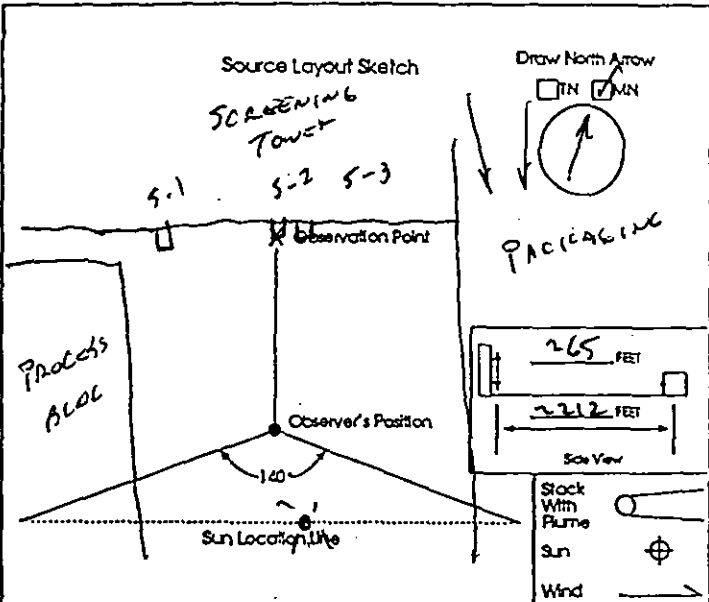 Source Layout Sketch
Draw North Arrow
TN MN
SCREENING
TOWER
S-1 S-2 S-3
Observation Point
PACKAGING
PROCESS
BLDG
~65 FEET
~212 FEET
Side View
Observer's Position
140
Sun Location Line
Stack
With
Plume
Sun
Wind